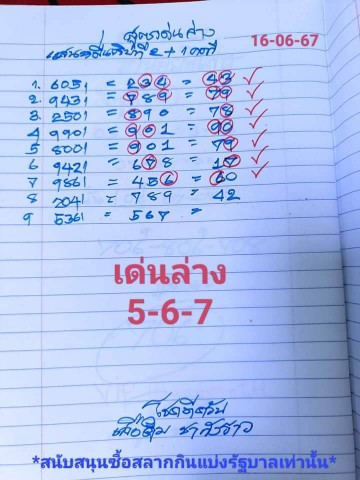 สูตรเด่นล่าง
16-06-67
1. 6051 = 234 = 43 ✓
2. 9431 = 789 = 79 ✓
3. 2501 = 890 = 78 ✓
4. 9901 = 901 = 90 ✓
5 8001 = 901 = 79 ✓
6 9421 = 678 = 17 ✓
7 9861 = 456 = 60 ✓
8 7041 = 789 = 42
9 5361 = 567 =
เด่นล่าง
5-6-7
โชคดีครับ
*สนับสนุนซื้อสลากกินแบ่งรัฐบาลเท่านั้น*